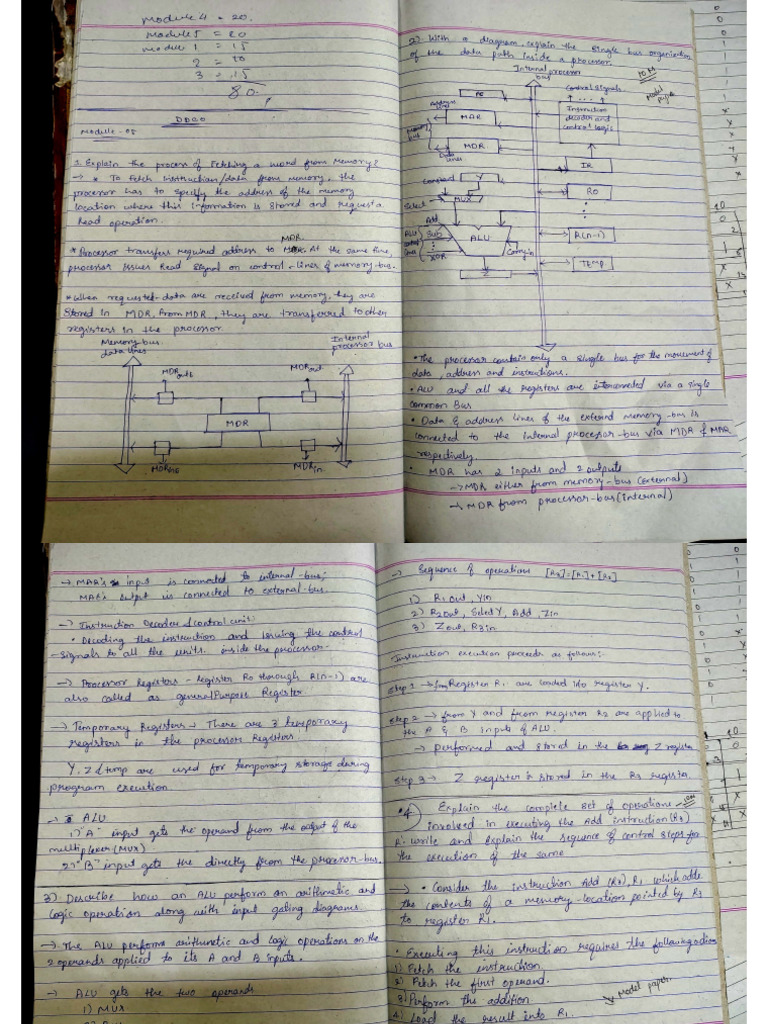 Module 4 = 20.
Module 5 = 20
Module 1 = 15
2 = 10
3 = 15
80.
DDCO
Module - 05
1. Explain the process of Fetching a word from Memory?
→ * To Fetch instruction/data from memory, the
processor has to specify the address of the memory
location where this information is stored and request a
Read operation.
MDR.
* Processor transfers required address to At the same time,
processor issues Read signal on control-lines of memory-bus.
* When requested-data are received from memory, they are
stored in MDR. From MDR, they are transferred to other
registers in the processor
Memory-bus
data lines
Internal
processor bus
MDR out
MDR out
MDR
MDR in.
2) With a diagram, explain the single bus organization
of the data path inside a processor.
10 M
Model paper
Internal processor
bus
Control signals
PC
Address
lines
MAR
Instruction
decoder and
control logic
MDR
Data
lines
IR
Constant
Y
R0
Select
MUX
Add
Sub
XOR
ALU
control
lines
ALU
Carry in
R(n-1)
TEMP
Z
• The processor contain only a single bus for the movement of
data, address and instructions.
• ALU and all the registers are interconnected via a single
common Bus
• Data & address lines of the external memory-bus is
connected to the internal processor-bus via MDR & MAR
respectively.
• MDR has 2 inputs and 2 outputs
→ MDR either from memory-bus (external)
→ MDR from processor-bus (internal)
→ MAR's input is connected to internal-bus;
MAR's output is connected to external-bus.
→ Instruction Decoder & control unit:
• Decoding the instruction and issuing the control
-signals to all the units inside the processor.
→ Processor Registers - register R0 through R(n-1) are
also called as general Purpose Register
→ Temporary Registers → There are 3 temporary
registers in the processor Registers.
Y, Z & temp are used for temporary storage during
program execution
→ ALU
1) "A" input gets the operand from the output of the
multiplexer (MUX)
2) "B" input gets the directly from the processor-bus.
3) Describe how an ALU perform an arithmetic and
logic operation along with input gating diagrams.
→ The ALU performs arithmetic and logic operations on the
2 operands applied to its A and B inputs.
→ ALU gets the two operands
1) MUX
→ Sequence of operations [R3]=[R1]+[R2]
1) R1 out, Yin
2) R2 out, Select Y, Add, Zin
3) Z out, R3 in
Instruction execution proceeds as follows:
Step 1 → from Register R1 are loaded into register Y.
Step 2 → from Y and from register R2 are applied to
the A & B inputs of ALU.
→ performed and stored in the Z register
Step 3 → Z register is stored in the R3 register.
*4 Explain the complete set of operations
involved in executing the Add instruction (R3)
R1. Write and explain the sequence of control steps for
the execution of the same
→ • Consider the instruction Add (R3), R1 which adds
the contents of a memory-location pointed by R3
to register R1.
• Executing this instruction requires the following action
1) Fetch the instruction.
2) Fetch the first operand.
3) Perform the addition
4) Load the result into R1.
Model paper.